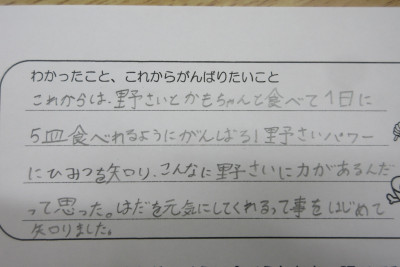 わかったこと、これからがんばりたいこと
これからは、野さいとかもちゃんと食べて1日に
5皿食べれるようにがんばる!野さいパワー
にひみつを知り、こんなに野さいに力があるんだ
って思った。はだを元気にしてくれるって事をはじめて
知りました。